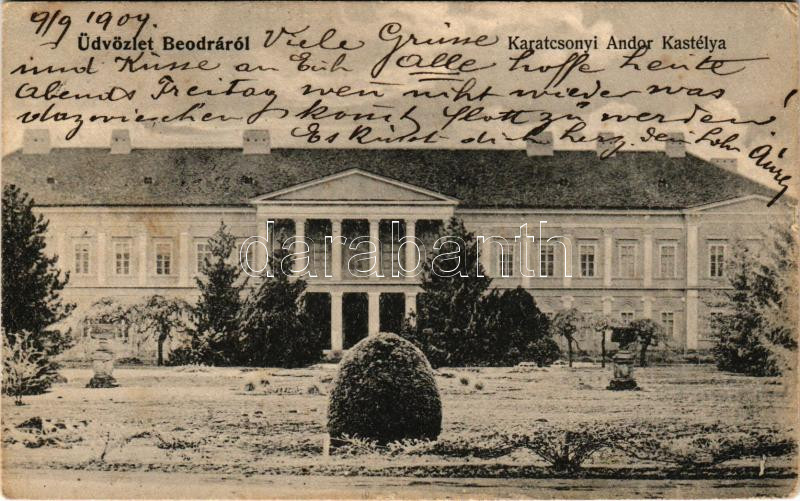 9/9 1909
Üdvözlet Beodráról
Karatcsonyi Andor Kastélya
Viele Grüsse
und Küsse an Euch Alle hoffe heute
Abends Freitag wen niht wieder was
dazwieschen komt flott zu werden!
Es Küsst dich herz. dein Sohn
darabanth.com